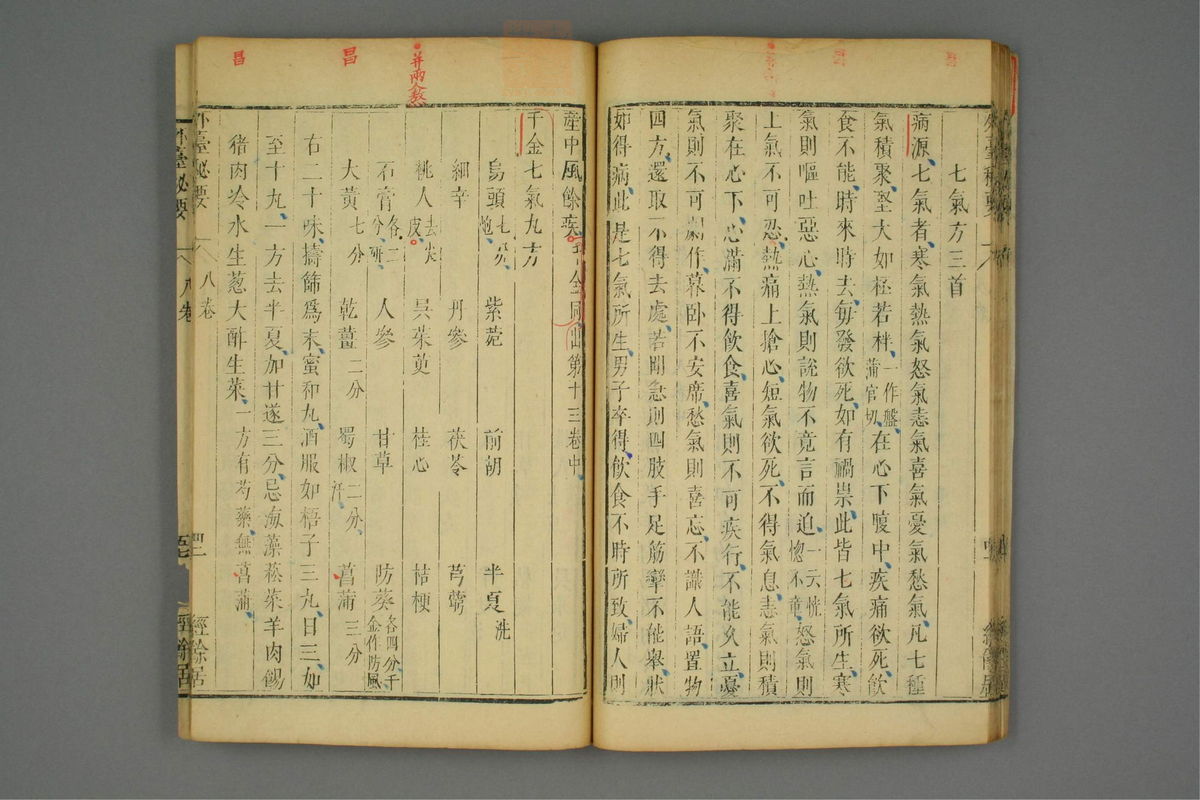 七氣方三首
病源七氣者寒氣熱氣怒氣恚氣喜氣憂氣愁氣凡七種
氣積聚堅大如杯若柈一作盤蒲官切在心下腹中疾痛欲死飲
食不能時來時去每發欲死如有禍祟此皆七氣所生寒
氣則嘔吐惡心熱氣則說物不竟言而迫一云恍惚不章怒氣則
上氣不可忍熱痛上搶心短氣欲死不得氣息恚氣則積
聚在心下心滿不得飲食喜氣則不可疾行不能久立憂
氣則不可劇作暮臥不安席愁氣則喜忘不識人語置物
四方還取不得去處若聞急則四肢手足筋攣不能舉狀
如得病此是七氣所生男子卒得飲食不時所致婦人則
產中風餘疾千金同出第十三卷中
千金七氣丸方
烏頭七分炮 紫菀 前胡 半夏洗
細辛 丹參 茯苓 芎藭
桃人去皮尖 吳茱萸 桂心 桔梗
石膏各二分研 人參 甘草 防葵各四分千金作防風
大黃七分 乾薑二分 蜀椒二分汗 菖蒲三分
右二十味擣篩爲末蜜和丸酒服如梧子三丸日三如
至十丸一方去半夏加甘遂三分忌海藻菘菜羊肉餳
猪肉冷水生葱大酢生菜一方有芍藥無菖蒲
外臺秘要 八卷 四二 經餘居
外臺秘要 八卷 經餘居
外臺秘要 經餘居
并兩人煞
昌
昌